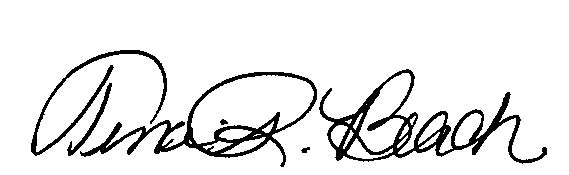 Tina R. Beach